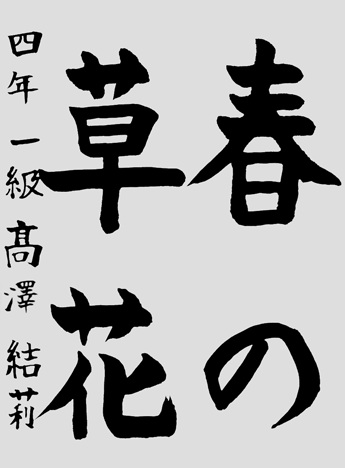 春の
草花
四年 一級 髙澤 結莉